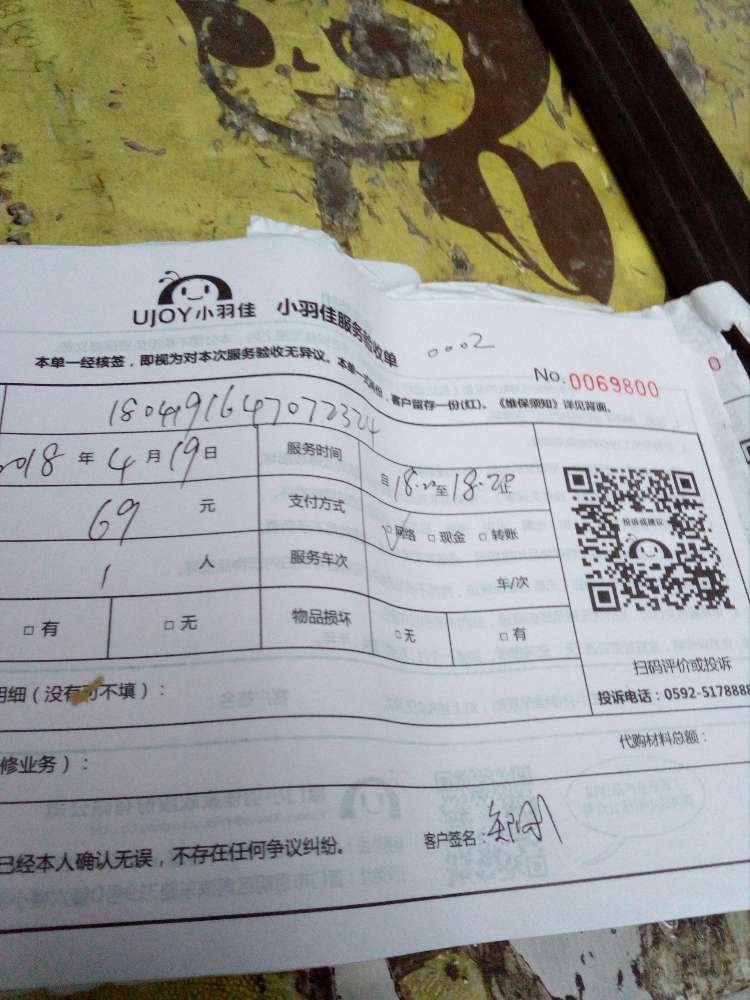 UJOY小羽佳 小羽佳服务验收单
0002
No.0069800
本单一经核签，即视为对本次服务验收无异议。本单一式两份，客户留存一份(红)。《维保须知》详见背面。
1804191647072324
2018 年 4 月 19 日 服务时间 自 18:20 至 18:28
69 元 支付方式 □网络 □现金 □转账
投诉或建议
1 人 服务车次 年/次
□有 □无 物品损坏 □无 □有
扫码评价或投诉
明细（没有可不填）：
投诉电话：0592-5178888
代购材料总额：
修业务）：
客户签名：
已经本人确认无误，不存在任何争议纠纷。